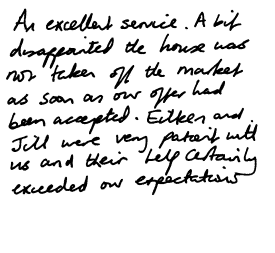 An excellent service. A bit
disappointed the house was
not taken off the market
as soon as our offer had
been accepted. Eilken and
Jill were very patient with
us and their help certainly
exceeded our expectations